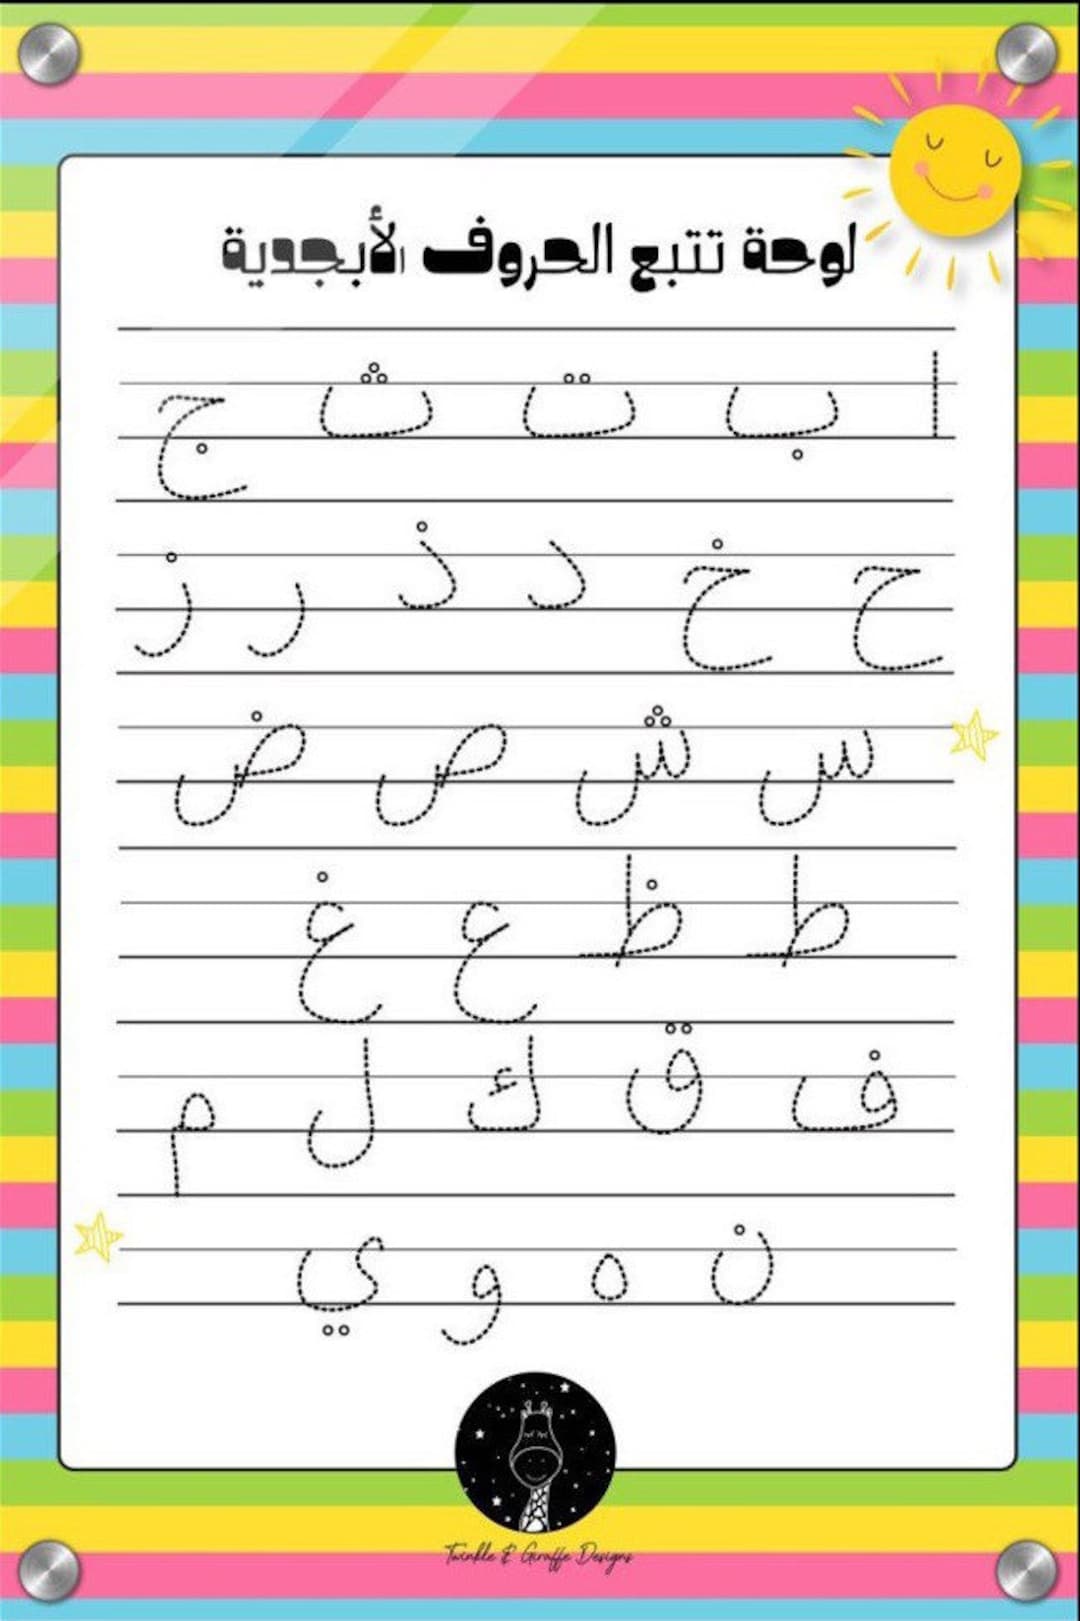 لوحة تتبع الحروف الأبجدية
ا ب ت ث ج
ح خ د ذ ر ز
س ش ص ض
ط ظ ع غ
ف ق ك ل م
ن ه و ي
Twinkle & Giraffe Designs